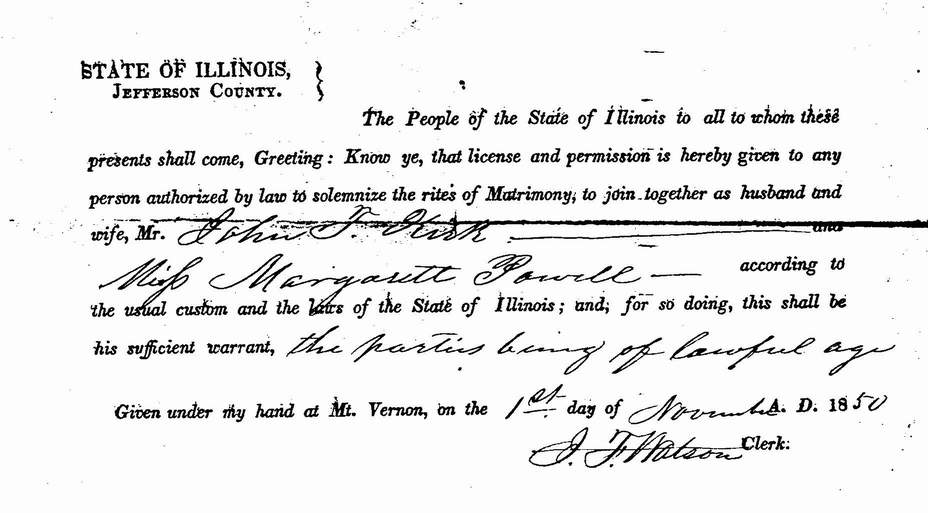 STATE OF ILLINOIS,
JEFFERSON COUNTY.
The People of the State of Illinois to all to whom these
presents shall come, Greeting: Know ye, that license and permission is hereby given to any
person authorized by law to solemnize the rites of Matrimony, to join together as husband and
wife, Mr. John T. Kirk and
Miss Margarett Powell — according to
the usual custom and the laws of the State of Illinois; and, for so doing, this shall be
his sufficient warrant, the parties being of lawful age
Given under my hand at Mt. Vernon, on the 1st day of November A. D. 1850
J. F. Watson Clerk.